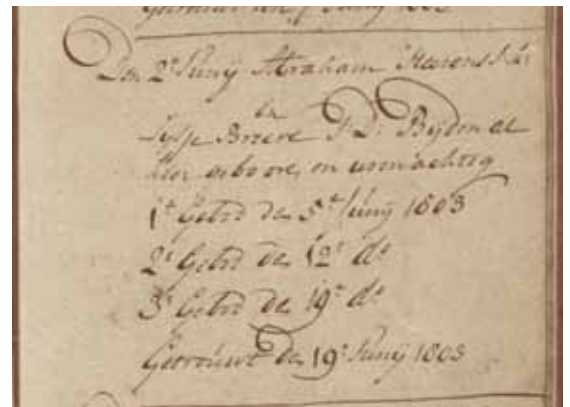 Getrouwt den Junij 1803
Den 2e Junij Abraham Stevens J:M:
en
Lijsje Broere J:D: Beijden al
hier geboore, en woonachtig
1e Gebod den 5e Junij 1803
2e Gebod den 12e do
3e Gebod de 19e do
Getrouwt den 19e Junij 1803